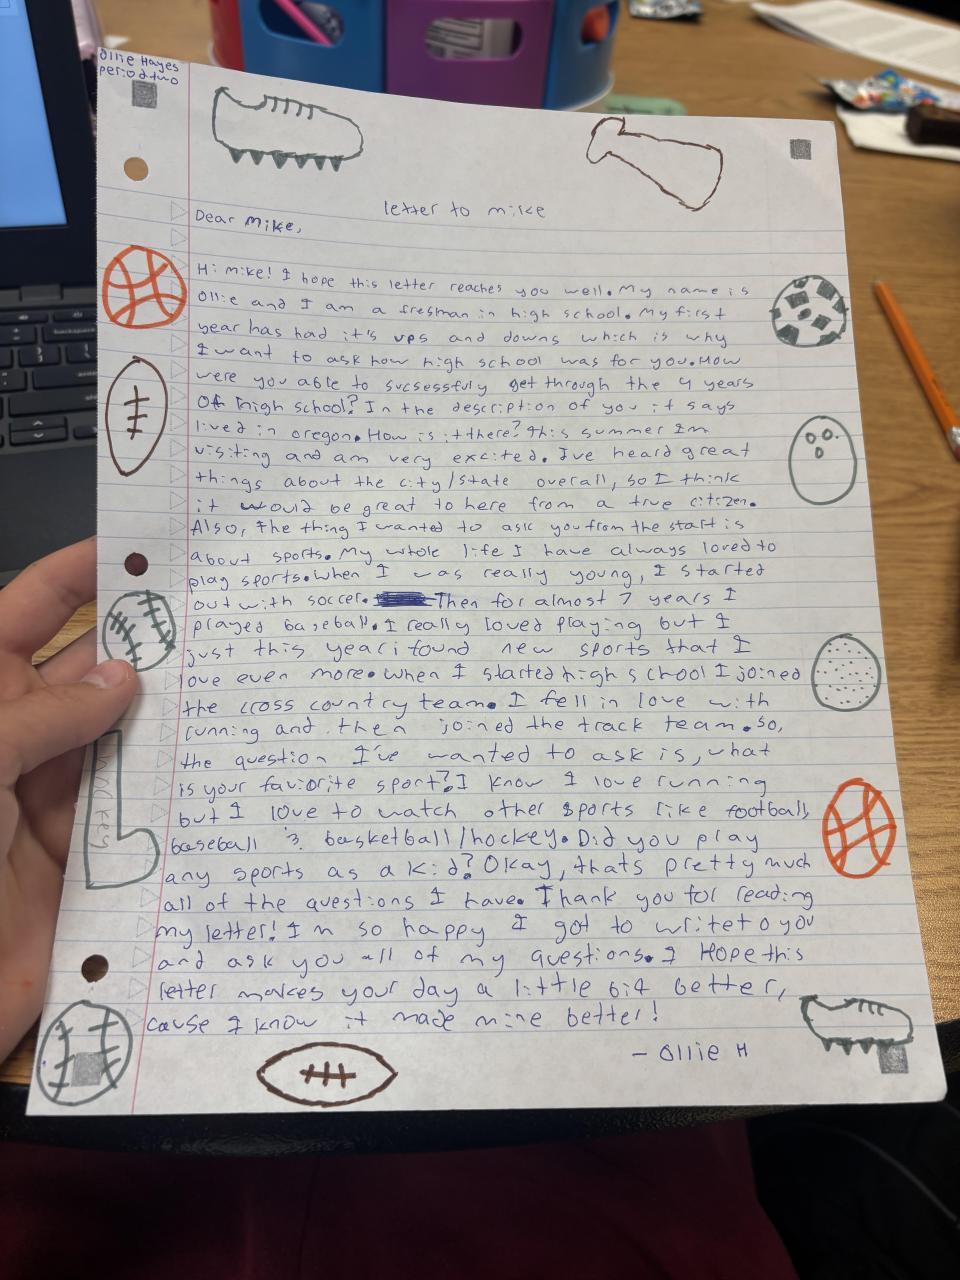 Ollie Hayes
period two
letter to mike
Dear Mike,
Hi mike! I hope this letter reaches you well. My name is
Ollie and I am a fresman in high school. My first
year has had it's ups and downs which is why
I want to ask how high school was for you. How
were you able to sucsessfuly get through the 4 years
Of high school? In the description of you it says
lived in oregon. How is it there? This summer Im
visiting and am very excited. I've heard great
things about the city/state overall, so I think
it would be great to here from a true citizen.
Also, the thing I wanted to ask you from the start is
about sports. My whole life I have always loved to
play sports. when I was really young, I started
out with soccer. Then for almost 7 years I
played baseball. I really loved playing but I
just this year i found new sports that I
love even more. when I started high school I joined
the cross country team. I fell in love with
running and then joined the track team. so,
the question I've wanted to ask is, what
is your favorite sport? I know I love running
but I love to watch other sports like football,
baseball & basketball/hockey. Did you play
any sports as a kid? Okay, thats pretty much
all of the questions I have. Thank you for reading
my letter! I'm so happy I got to write to you
and ask you all of my questions. I Hope this
letter makes your day a little bit better,
cause I know it made mine better!
- Ollie H
hockey